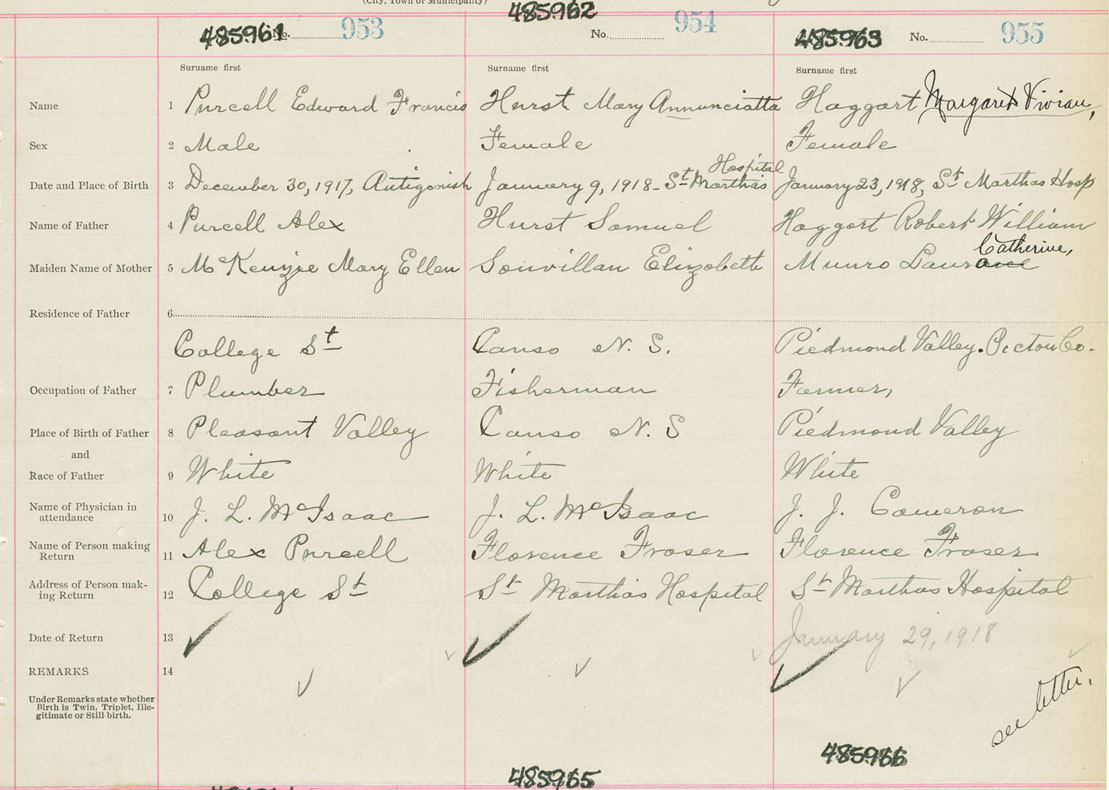 (City, Town or Municipality)
485961 No. 953 485962 No. 954 485963 No. 955
Surname first Surname first Surname first
Name 1 Purcell Edward Francis Hurst Mary Annunciatta Haggart Margaret Vivian,
Sex 2 Male Female Female
Hospital
Date and Place of Birth 3 December 30, 1917, Antigonish January 9, 1918 - St Marthas January 23, 1918, St Marthas Hosp
Name of Father 4 Purcell Alex Hurst Samuel Haggart Robert William
Catherine,
Maiden Name of Mother 5 McKenzie Mary Ellen Souvillan Elizabeth Munro
Residence of Father 6
College St Canso N. S. Piedmond Valley. Pictou Co.
Occupation of Father 7 Plumber Fisherman Farmer,
Place of Birth of Father 8 Pleasant Valley Canso N. S Piedmond Valley
and
Race of Father 9 White White White
Name of Physician in
attendance 10 J. L. McIsaac J. L. McIsaac J. J. Cameron
Name of Person making
Return 11 Alex Purcell Florence Fraser Florence Fraser
Address of Person mak-
ing Return 12 College St St Marthas Hospital St Marthas Hospital
Date of Return 13 January 29, 1918
REMARKS 14
Under Remarks state whether
Birth is Twin, Triplet, Ille-
gitimate or Still birth.
see letter.
485965 485966